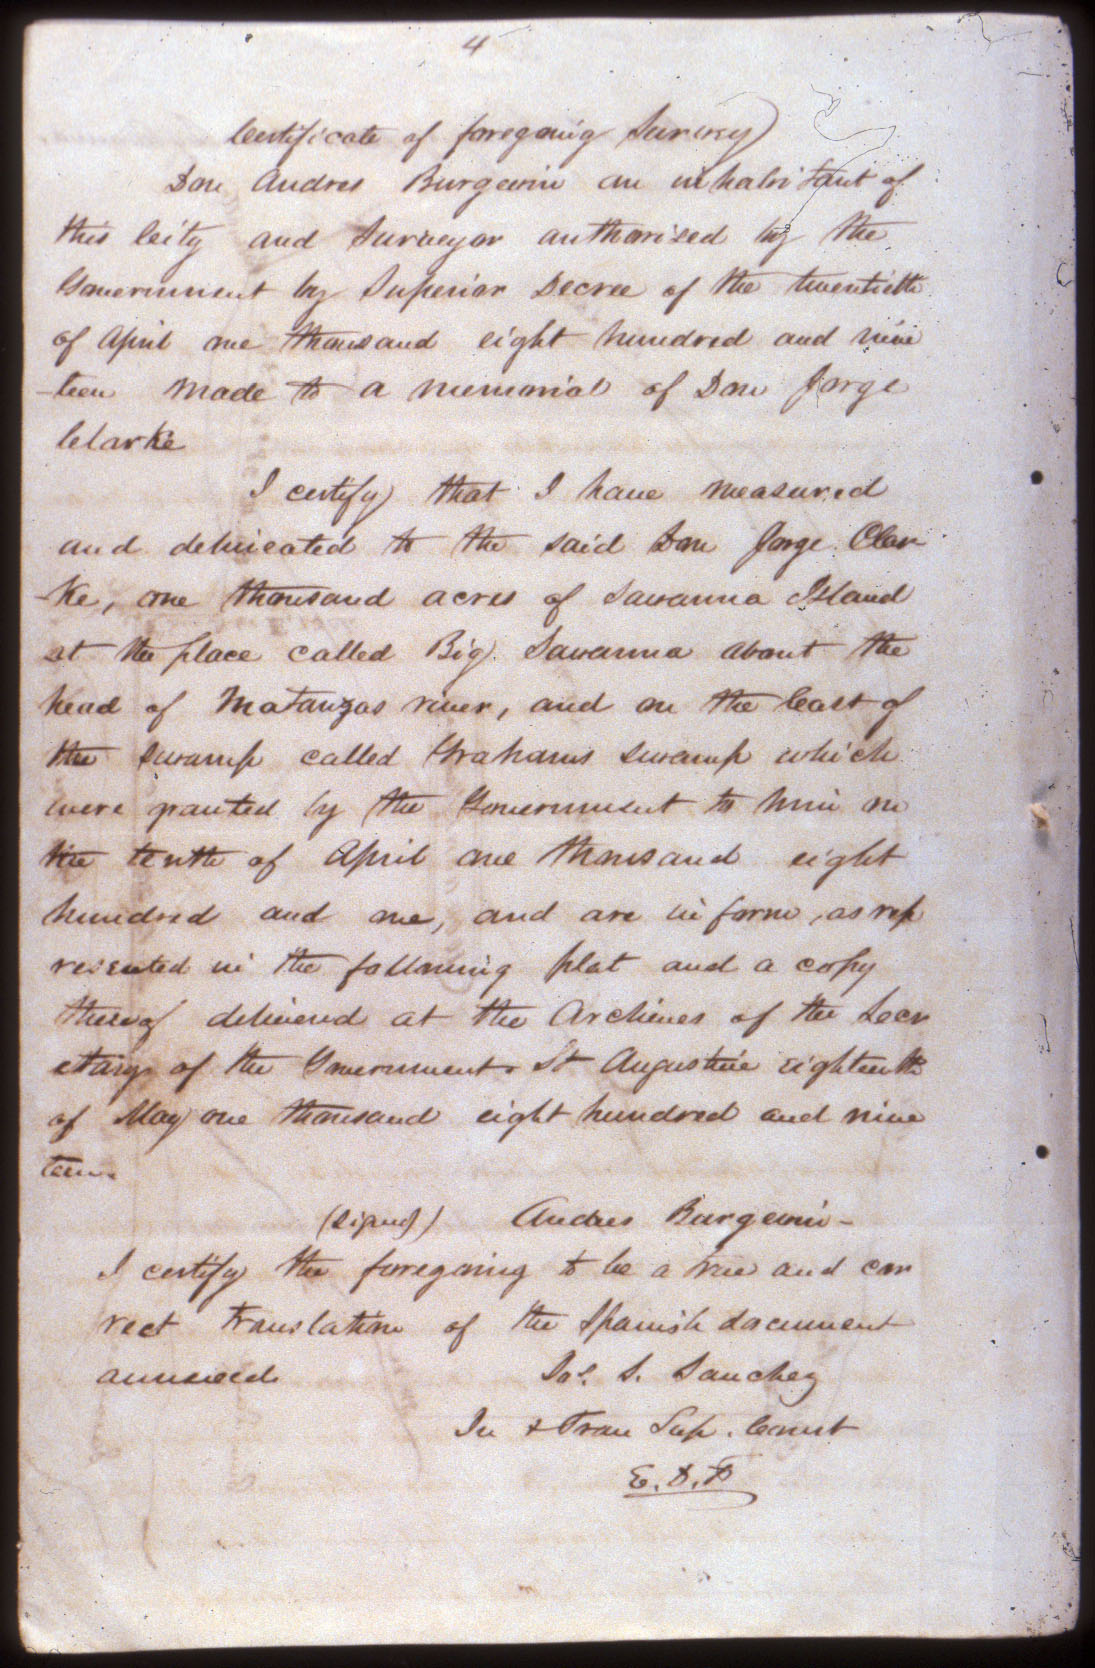 4
Certificate of foregoing Survey
Don Andres Burgevin an inhabitant of
this City and Surveyor authorized by the
Government by Superior Decree of the twentieth
of April one thousand eight hundred and nine
-teen made to a memorial of Don Jorge
Clarke
I certify that I have measured
and delineated to the said Don Jorge Clar
-ke, one thousand acres of Savanna Island
at the place called Big Savanna about the
head of Matanzas river, and on the East of
the swamp called Grahams swamp which
were granted by the Government to him on
the tenth of April one thousand eight
hundred and one, and are in form, as rep
resented in the following plat and a copy
thereof delivered at the Archives of the Secr
etary of the Government. St Augustine eighteenth
of May one thousand eight hundred and nine
teen.
(signed) Andres Burgevin-
I certify the foregoing to be a true and cor
rect translation of the Spanish document
annexed
Jos. S. Sanchez
In & Tran Sup. Court
E. D. F